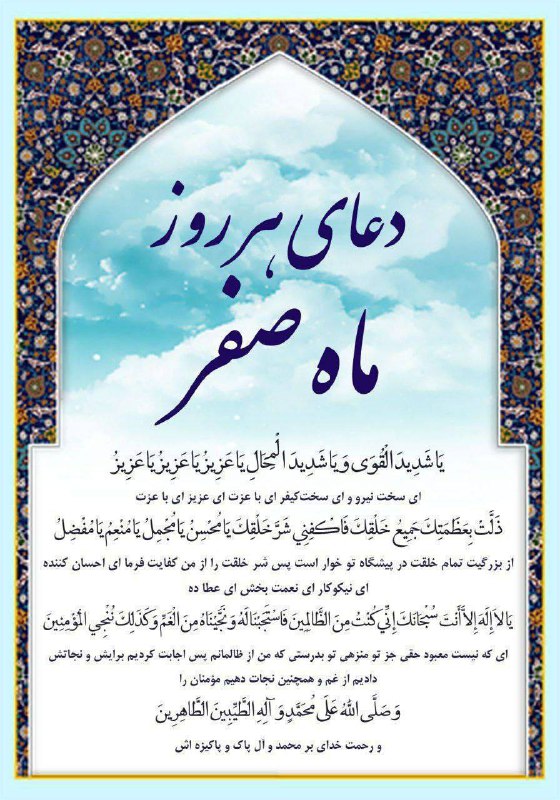 دعای هر روز
ماه صفر
يَا شَدِيدَ الْقُوَى وَ يَا شَدِيدَ الْمِحَالِ يَا عَزِيزُ يَا عَزِيزُ يَا عَزِيزُ
ای سخت نیرو و ای سخت‌کیفر ای با عزت ای عزیز ای با عزت
ذَلَّتْ بِعَظَمَتِكَ جَمِيعُ خَلْقِكَ فَاكْفِنِي شَرَّ خَلْقِكَ يَا مُحْسِنُ يَا مُجْمِلُ يَا مُنْعِمُ يَا مُفْضِلُ
از بزرگیت تمام خلقت در پیشگاه تو خوار است پس شر خلقت را از من کفایت فرما ای احسان کننده
ای نیکوکار ای نعمت بخش ای عطا ده
يَا لا إِلَهَ إِلاَّ أَنْتَ سُبْحَانَكَ إِنِّي كُنْتُ مِنَ الظَّالِمِينَ فَاسْتَجَبْنَا لَهُ وَ نَجَّيْنَاهُ مِنَ الْغَمِّ وَ كَذَلِكَ نُنْجِي الْمُؤْمِنِينَ
ای که نیست معبود حقی جز تو منزهی تو بدرستی که من از ظالمانم پس اجابت کردیم برایش و نجاتش
دادیم از غم و همچنین نجات دهیم مؤمنان را
وَ صَلَّى اللهُ عَلَى مُحَمَّدٍ وَ آلِهِ الطَّيِّبِينَ الطَّاهِرِينَ
و رحمت خدای بر محمد و آل پاک و پاکیزه اش